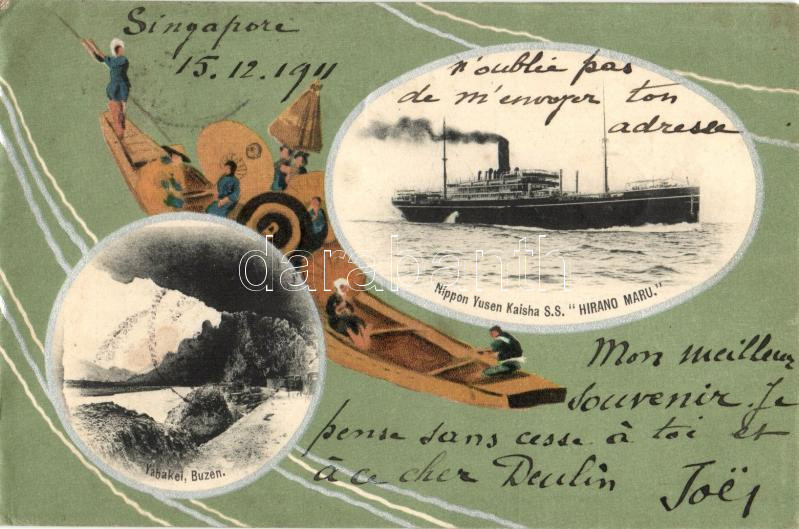 Singapore
15.12.1911
n'oublie pas
de m'envoyer ton
adresse
Nippon Yusen Kaisha S.S. "HIRANO MARU."
darabanth
Yabakei, Buzen.
Mon meilleur
souvenir. Je
pense sans cesse à toi et
à ce cher Deulin
Joëy